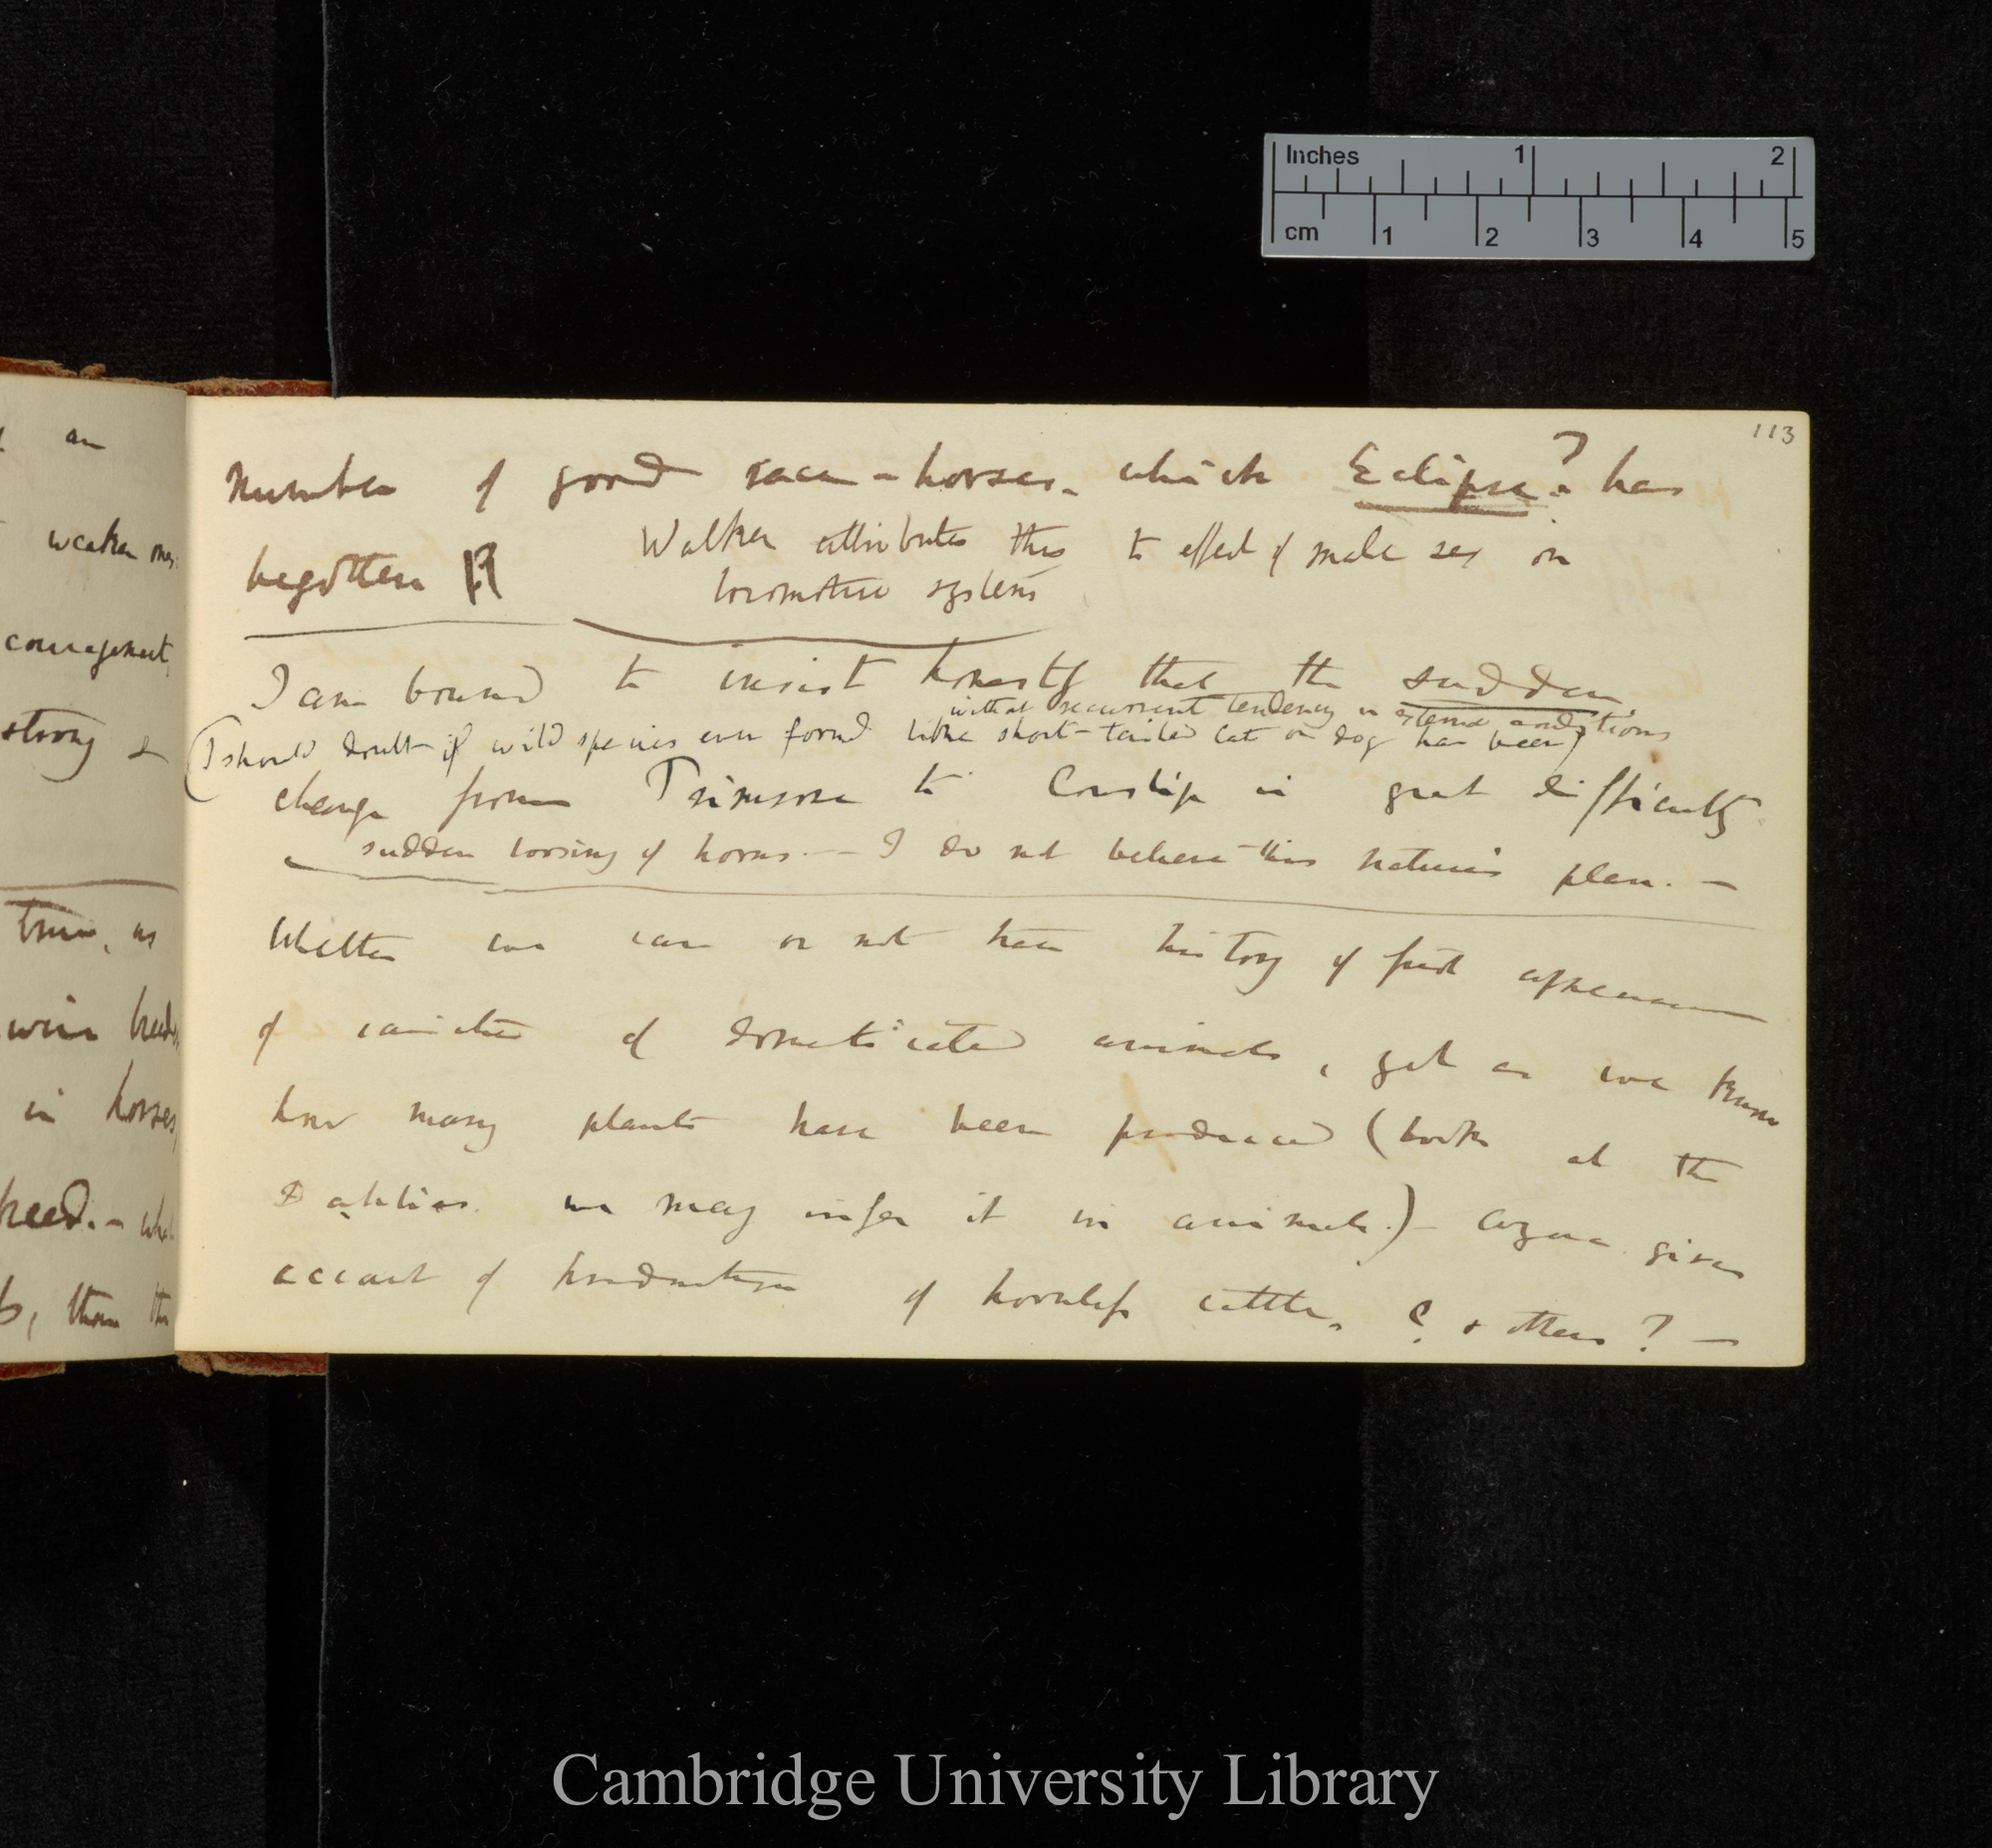 Inches 1 2
cm 1 2 3 4 5
113
an
weaker ones
couragement,
strong &
true, as
breeds
in horses,
breed. –
than the
number of good race-horses. which Eclipse? has
begotten
Walker attributes this to effect of male sex on
locomotive systems
I am bound to insist honestly that the sudden
without recurrent tendency in external conditions
(I should doubt if wild species ever formd like short-tailed cat or dog has been)
change from Primrose to Cowslip is great difficulty
sudden loosing of horns. — I do not believe this nature's plan. —
Whether we can or not trace history of first appearance
of varieties of domesticated animals, yet as we know
how many plants have been produced (look at the
Dahlias we may infer it in animals.) – Azara gives
account of production of hornless cattle, ? & others? —
Cambridge University Library